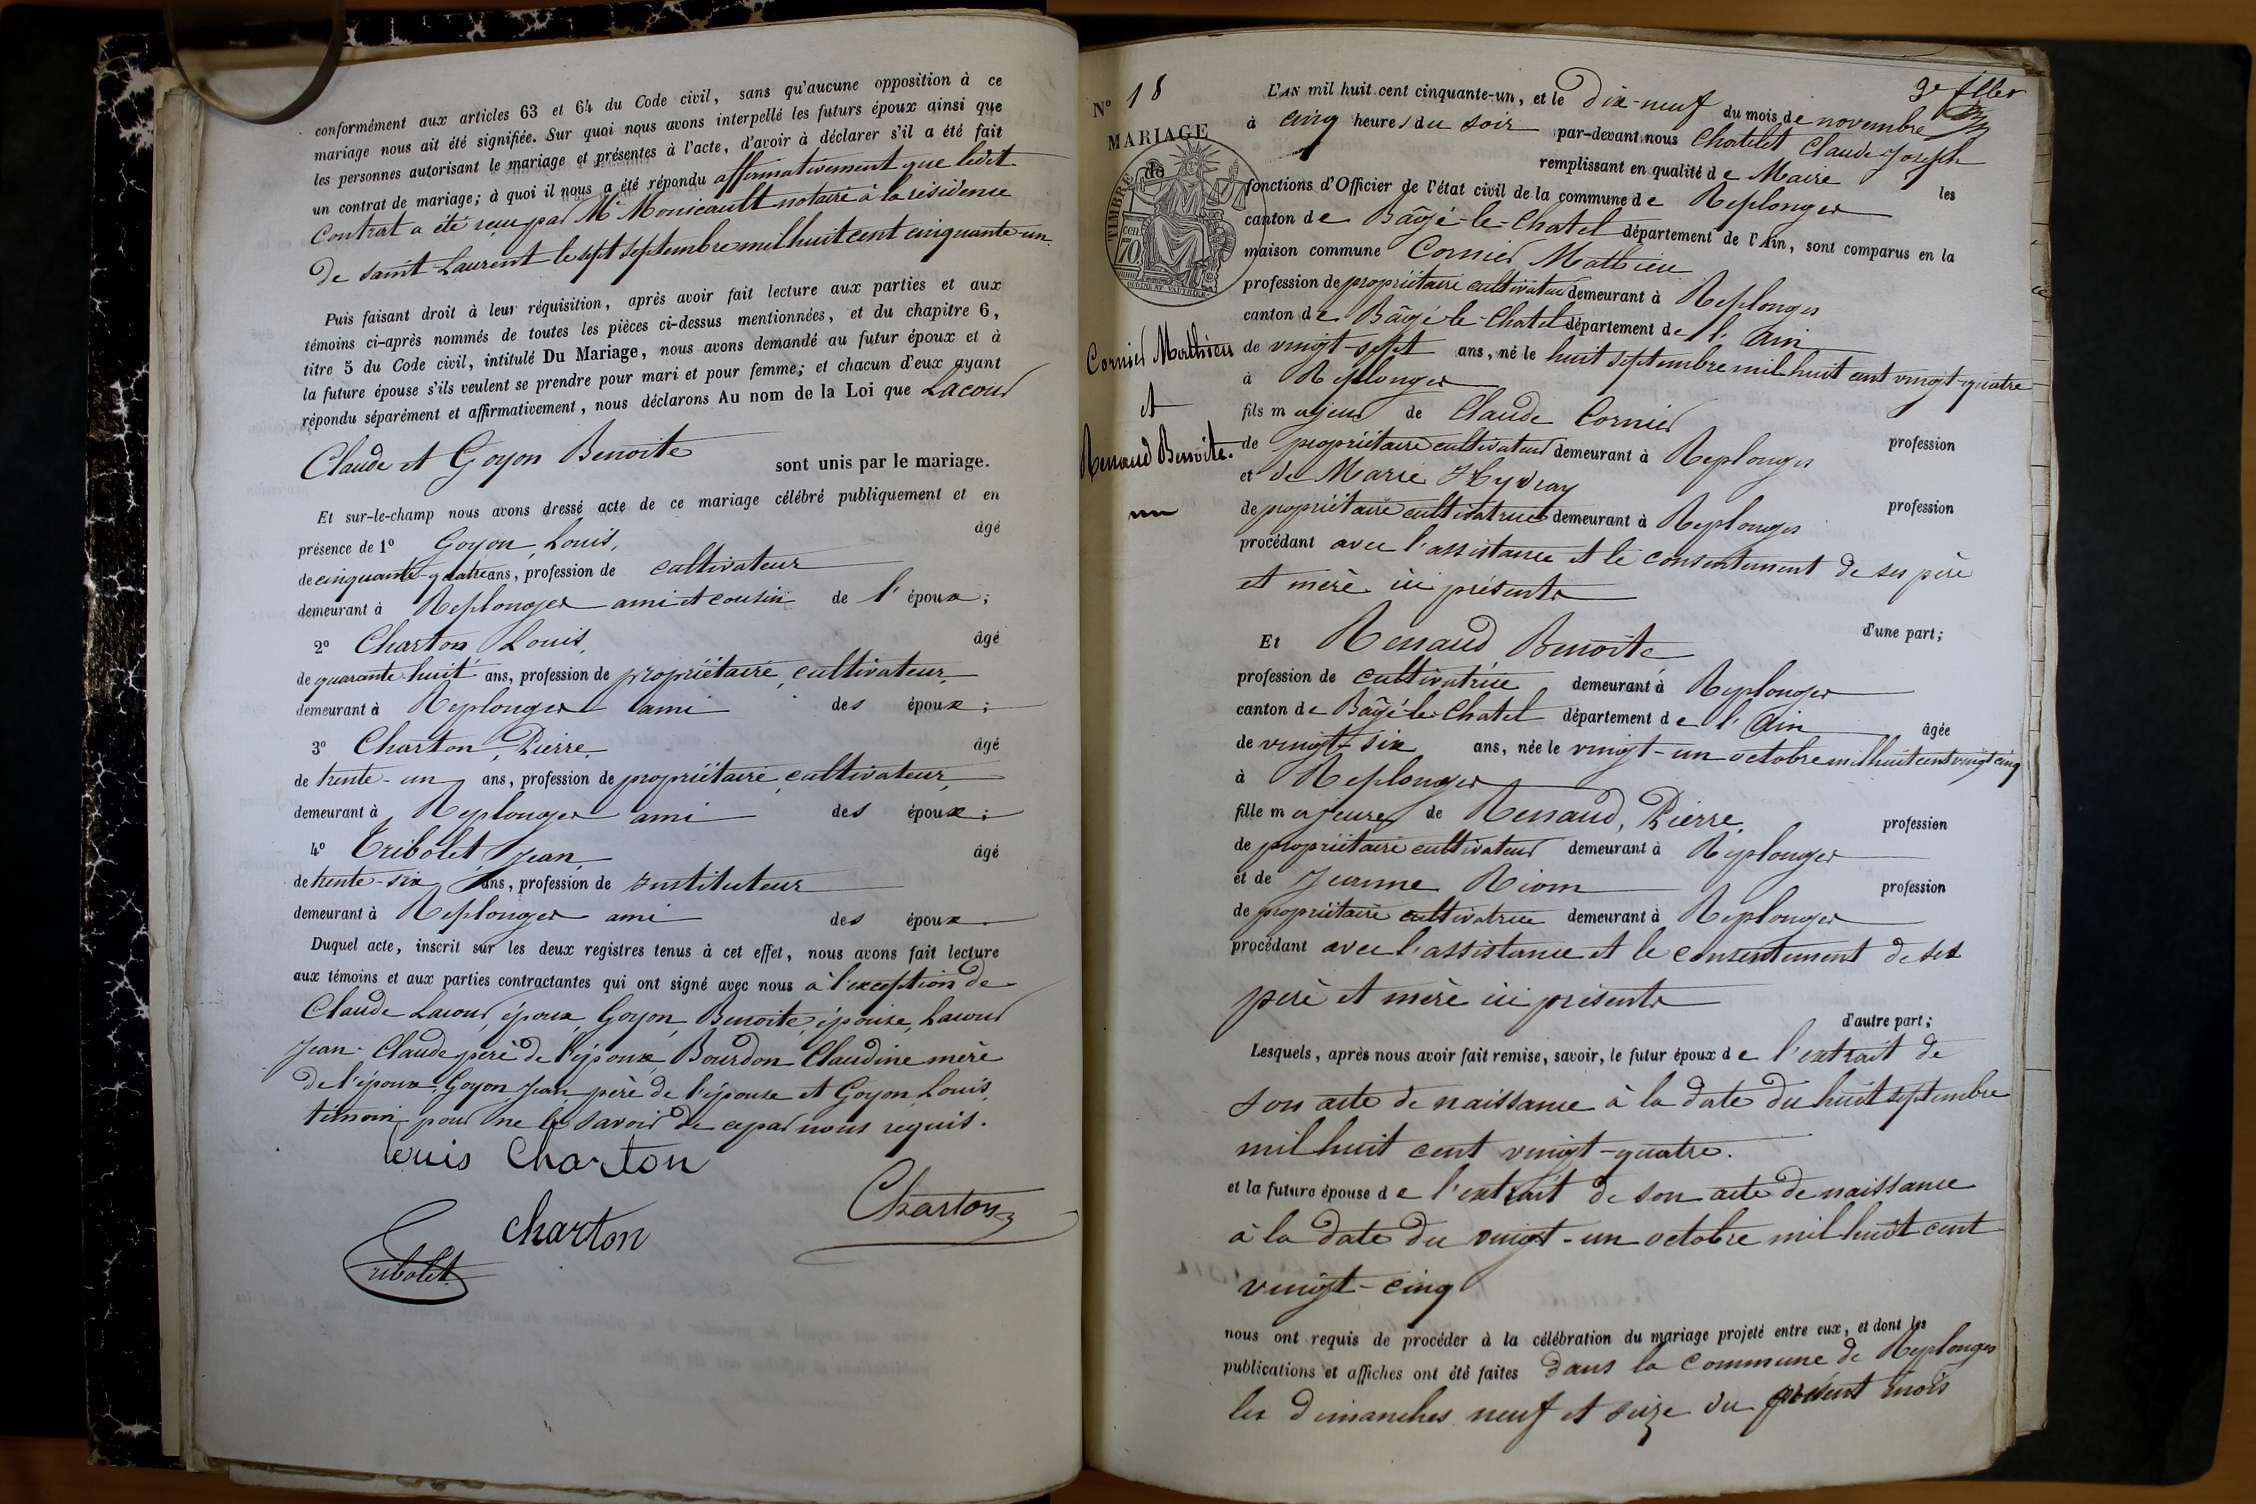 conformément aux articles 63 et 64 du Code civil, sans qu'aucune opposition à ce
mariage nous ait été signifiée. Sur quoi nous avons interpellé les futurs époux ainsi que
les personnes autorisant le mariage et présentes à l'acte, d'avoir à déclarer s'il a été fait
un contrat de mariage; à quoi il nous a été répondu affirmativement que ledit
Contrat a été reçu par Me Monicault notaire à la résidence
de saint Laurent le sept septembre mil huit cent cinquante-un.
Puis faisant droit à leur réquisition, après avoir fait lecture aux parties et aux
témoins ci-après nommés de toutes les pièces ci-dessus mentionnées, et du chapitre 6,
titre 5 du Code civil, intitulé Du Mariage, nous avons demandé au futur époux et à
la future épouse s'ils veulent se prendre pour mari et pour femme; et chacun d'eux ayant
répondu séparément et affirmativement, nous déclarons Au nom de la Loi que Lacour
Claude et Goyon Benoite
sont unis par le mariage.
Et sur-le-champ nous avons dressé acte de ce mariage célébré publiquement et en
présence de 1° Goyon Louis, âgé
de cinquante-quatre ans, profession de cultivateur
demeurant à Replonges ami et cousin de l'époux;
2° Charton Louis, âgé
de quarante huit ans, profession de propriétaire cultivateur
demeurant à Replonges ami des époux;
3° Charton, Pierre, âgé
de trente-un ans, profession de propriétaire cultivateur
demeurant à Replonges ami des époux;
4° Tribolet Jean, âgé
de trente-six ans, profession de Instituteur
demeurant à Replonges ami des époux.
Duquel acte, inscrit sur les deux registres tenus à cet effet, nous avons fait lecture
aux témoins et aux parties contractantes qui ont signé avec nous à l'exception de
Claude Lacour époux, Goyon Benoite épouse, Lacour
Jean-Claude père de l'époux Bourdon Claudine mère
de l'époux, Goyon Jean père de l'épouse et Goyon Louis,
témoin pour ne le savoir de ce par nous requis.
louis Charton
Charton
charton
Tribolet
N° 18
MARIAGE
de
TIMBRE
cen.
70
Cornier Mathieu
et
Renaud Benoîte.
L'AN mil huit cent cinquante-un, et le Dix-neuf du mois de novembre
à cinq heures du soir par-devant nous Chatelet Claude-Joseph
remplissant en qualité de Maire les
fonctions d'Officier de l'état civil de la commune de Replonges
canton de Bâgé-le-Chatel département de l'Ain, sont comparus en la
maison commune Cornier Mathieu
profession de propriétaire cultivateur demeurant à Replonges
canton de Bâgé-le-Chatel département de l'Ain
de vingt-sept ans, né le huit septembre mil huit cent vingt-quatre
à Replonges
fils majeur de Claude Cornier profession
de propriétaire cultivateur demeurant à Replonges
et de Marie Hyvray profession
de propriétaire cultivatrice demeurant à Replonges
procédant avec l'assistance et le consentement de ses père
et mère ici présents
d'une part;
Et Renaud Benoîte
profession de cultivatrice demeurant à Replonges
canton de Bâgé-le-Chatel département de l'Ain âgée
de vingt-six ans, née le vingt-un octobre mil huit cent vingt cinq
à Replonges
fille majeure de Renaud, Pierre, profession
de propriétaire cultivateur demeurant à Replonges
et de Jeanne Riom profession
de propriétaire cultivatrice demeurant à Replonges
procédant avec l'assistance et le consentement de ses
père et mère ici présents
d'autre part;
Lesquels, après nous avoir fait remise, savoir, le futur époux de l'extrait de
son acte de naissance à la date du huit septembre
mil huit cent vingt-quatre.
et la future épouse de l'extrait de son acte de naissance
à la date du vingt-un octobre mil huit cent
vingt-cinq
nous ont requis de procéder à la célébration du mariage projeté entre eux, et dont les
publications et affiches ont été faites dans la Commune de Replonges
les dimanches neuf et seize du présent mois